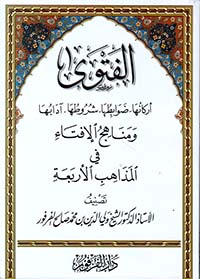 الفتوى
أركانها. ضوابطها. شروطها. آدابها
ومناهج الإفتاء
في
المذاهب الأربعة
تصنيف
الأستاذ الدكتور الشيخ ولي الدين بن محمد صالح الفرفور
دار الفرفور